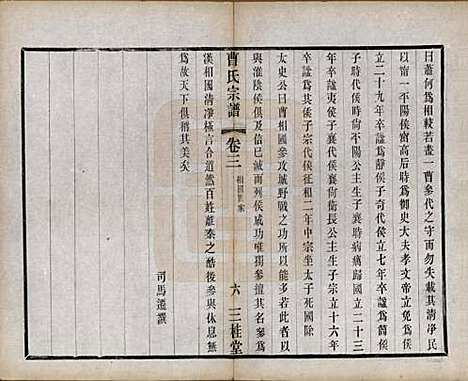 曰蕭何爲相較若畫一曹參代之守而勿失載其清凈民
以甯一平陽侯窋高后時爲御史大夫孝文帝立免爲侯
立二十九年卒諡爲靜侯子奇代侯立七年卒諡爲簡侯
子時代侯時尙平陽公主生子襄時病癘歸國立二十三
年卒諡夷侯子襄代侯襄尙衛長公主生子宗立十六年
卒諡爲共侯子宗代侯征和二年中宗坐太子死國除
太史公曰曹相國參攻城野戰之功所以能多若此者以
曹氏宗譜
卷三
相國世家
六
三桂堂
與淮陰侯俱及信已滅而列侯成功唯獨參擅其名參爲
漢相國清凈極言合道然百姓離秦之酷後參與休息無
爲故天下俱稱其美矣
司馬遷撰